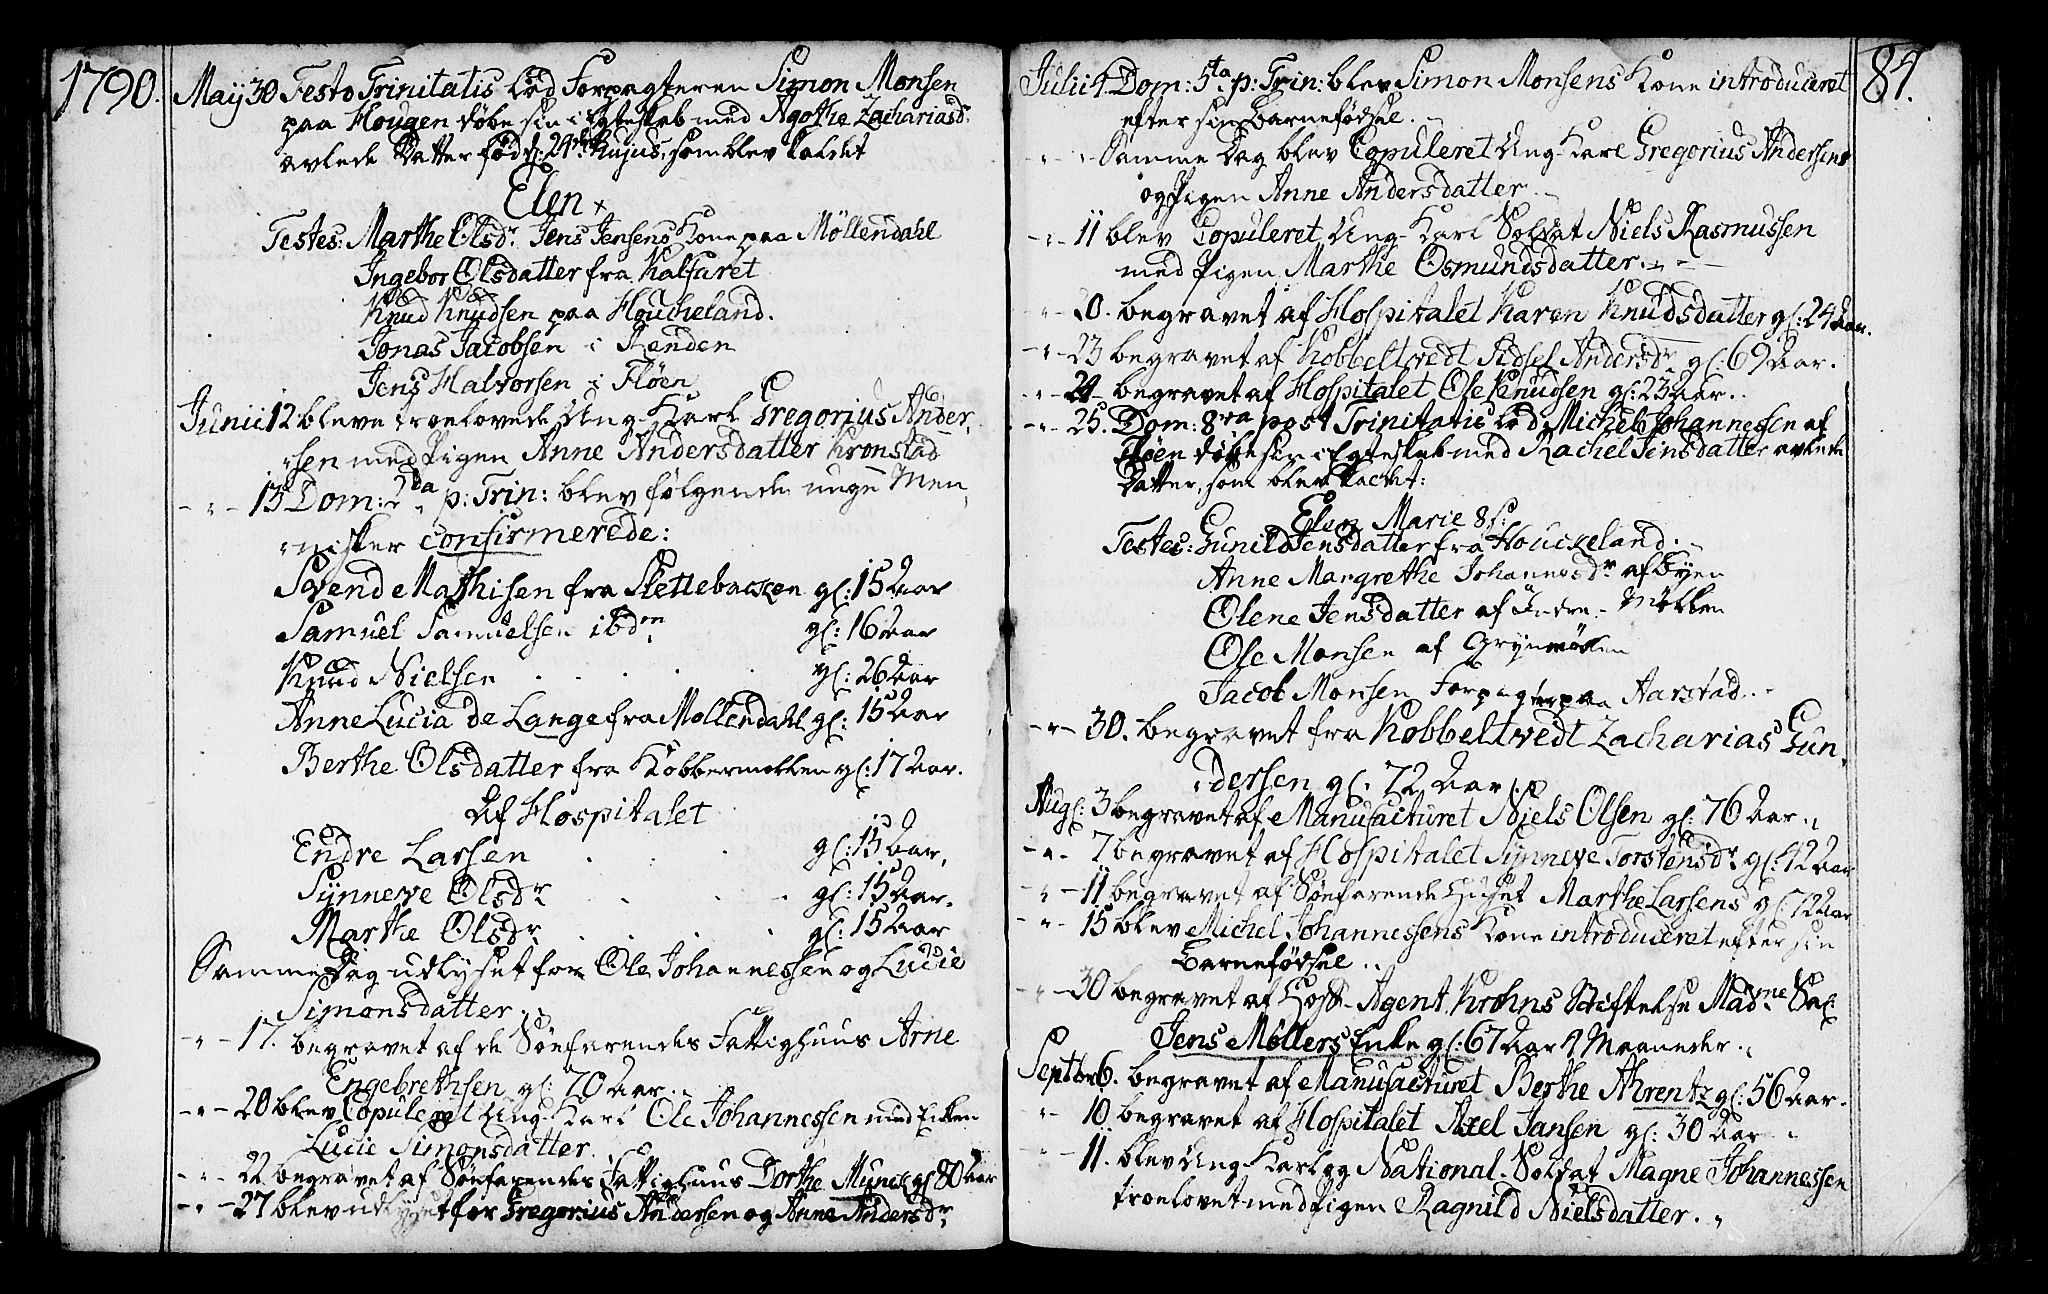 1790.
May 30 Festo Trinitatis lod Forpagteren Simon Monsen
paa Hougen døbe sin i Egteskab med Agothe Zachariasdr
avlede Datter född d: 24de hujus, som blev kaldet
Elen
Testes: Marthe Olsdr Jens Jensens Kone paa Möllendahl
Ingebor Olsdatter fra Kalfaret
Knud Knudsen paa Houckeland.
Jonas Jacobsen i Renden
Jens Halvorsen i Fløen
Junii 12 bleve troelovede Ung-Karl Gregorius Ander,
sen med Pigen Anne Andersdatter Kronstad
- " - 13 Dom: 2da p: Trin: blev følgende unge Men,
nisker confirmerede:
Svend Mathisen fra Slettebacken gl: 15 Aar
Samuel Samuelsen ibdm gl: 16 Aar
Knud Nielsen . . . . gl: 26 Aar
Anne Lucia de Lange fra Möllendahl gl: 15 Aar
Berthe Olsdatter fra Kobbermøllen gl: 17 Aar.
Af Hospitalet
Endre Larsen . . . gl: 15 Aar,
Synneve Olsdr . . . gl: 15 Aar.
Marthe Olsdr . . . gl: 15 Aar
Samme Dag udlyset for Ole Johannessen og Lucie
Simonsdatter.
- " - 17. begravet af de Søefarendes Fattighuus Arne
Engebrethsen gl: 70 Aar..
- " - 20 blev Copuleret Ung-Karl Ole Johannessen med Enken
Lucie Simonsdatter.
- " - 22 begravet af Søefarendes Fattighuus Dorthe Munck gl 80 Aar
- " - 27 blev udlyset for Gregorius Andersen og Anne Andersdr
84.
Julii 4. Dom: 5ta p: Trin: blev Simon Monsens Kone introduceret
efter sin Barnefødsel.
- " Samme Dag blev Copuleret Ung-Karl Gregorius Andersen
og Pigen Anne Andersdatter
- " - 11 blev Copuleret Ung-Karl Soldat Niels Rasmussen
med Pigen Marthe Osmundsdatter.
- " - 20. begravet af Hospitalet Karen Knudsdatter gl: 24 Aar.
- " - 23 begravet af Kobbeltvedt Sidsel Andersdr gl: 69 Aar.
- " - 24 begravet af Hospitalet Ole Knudsen gl: 23 Aar..
- " - 25. Dom: 8va post Trinitatis lod Michel Johannessen af
Fløen døbe sin i Egteskab med Rachel Jensdatter avlede
Datter, som blev kaldet:
Elen Marie
Testes: Gunild Jensdatter fra Houckeland.
Anne Margrethe Johannesdr af Byen
Olene Jensdatter af Indre-Møllen
Ole Monsen af Grynmøllen
Jacob Monsen Forpagter paa Aarstad..
- " - 30. begravet fra Kobbeltvedt Zacharias Gun,
dersen gl. 72 Aar
Augs: 3 begravet af Manufacturet Niels Olsen gl: 76 Aar.
- " - 7 begravet af Hospitalet Synneve Torstensdr gl: 42 Aar
- " - 11 begravet af Søefarende Huset Marthe Larsens gl: 72 Aar
- " - 15 blev Michel Johannessens Kone introduceret efter sin
Barnefødsel..
- " - 30 begravet af Agent Krohns Stiftelse Madme Sal:
Jens Møllers Enke gl: 67 Aar 9 Maaneder.
Septbr 6. begravet af Manufacturet Berthe Ahrentz gl: 56 Aar.
- " 10. begravet af Hospitalet Axel Jansen gl: 30 Aar
- " - 11. blev Ung-Karl og National-Soldat Magne Johannessen
troelovet med Pigen Ragnild Nielsdatter.